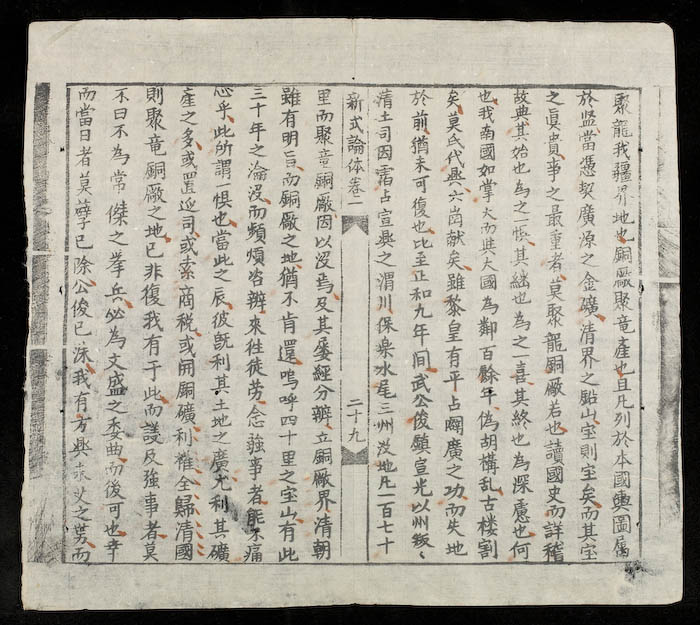 聚龍我疆界地也銅廠聚竜產也且凡列於本國輿圖屬
於 當憑契廣源之金礦清界之鉛山宝則宝矣而其宝
之眞貴事之最重者莫聚龍銅廠若也讀國史而詳稽
故典其始也為之一惧其継也為之一喜其終也為深慮也何
也我南國如掌大而與大國為鄰百餘年偽胡構乱古楼割
矣莫氏代興六峝献矣雖黎皇有平占闢廣之功而失地
於前猶未可復也比至正和九年间武公俊鎮宣光以州叛〻
清土司因霑占宣興之渭川保樂水尾三州 地凡一百七十
新式論体卷二 二十九
里而聚竜銅廠因以沒焉及其屡經分辨立銅廠界清朝
雖有明旨而銅廠之地猶不肯還嗚呼四十里之宝山有此
三十年之淪沒而頻煩咨辨來往徒勞念強事者能不痛
心乎此所謂一惧也當此之辰彼旣利其土地之廣尤利其礦
產之多或置巡司或索商税或開銅礦利権全歸清國
則聚竜銅廠之地已非復我有于此而議及強事者莫
不曰不為常傑之挙兵必為文盛之委曲而後可也幸
而當日者莫孽已除公俊已 我有方興未艾之勢而